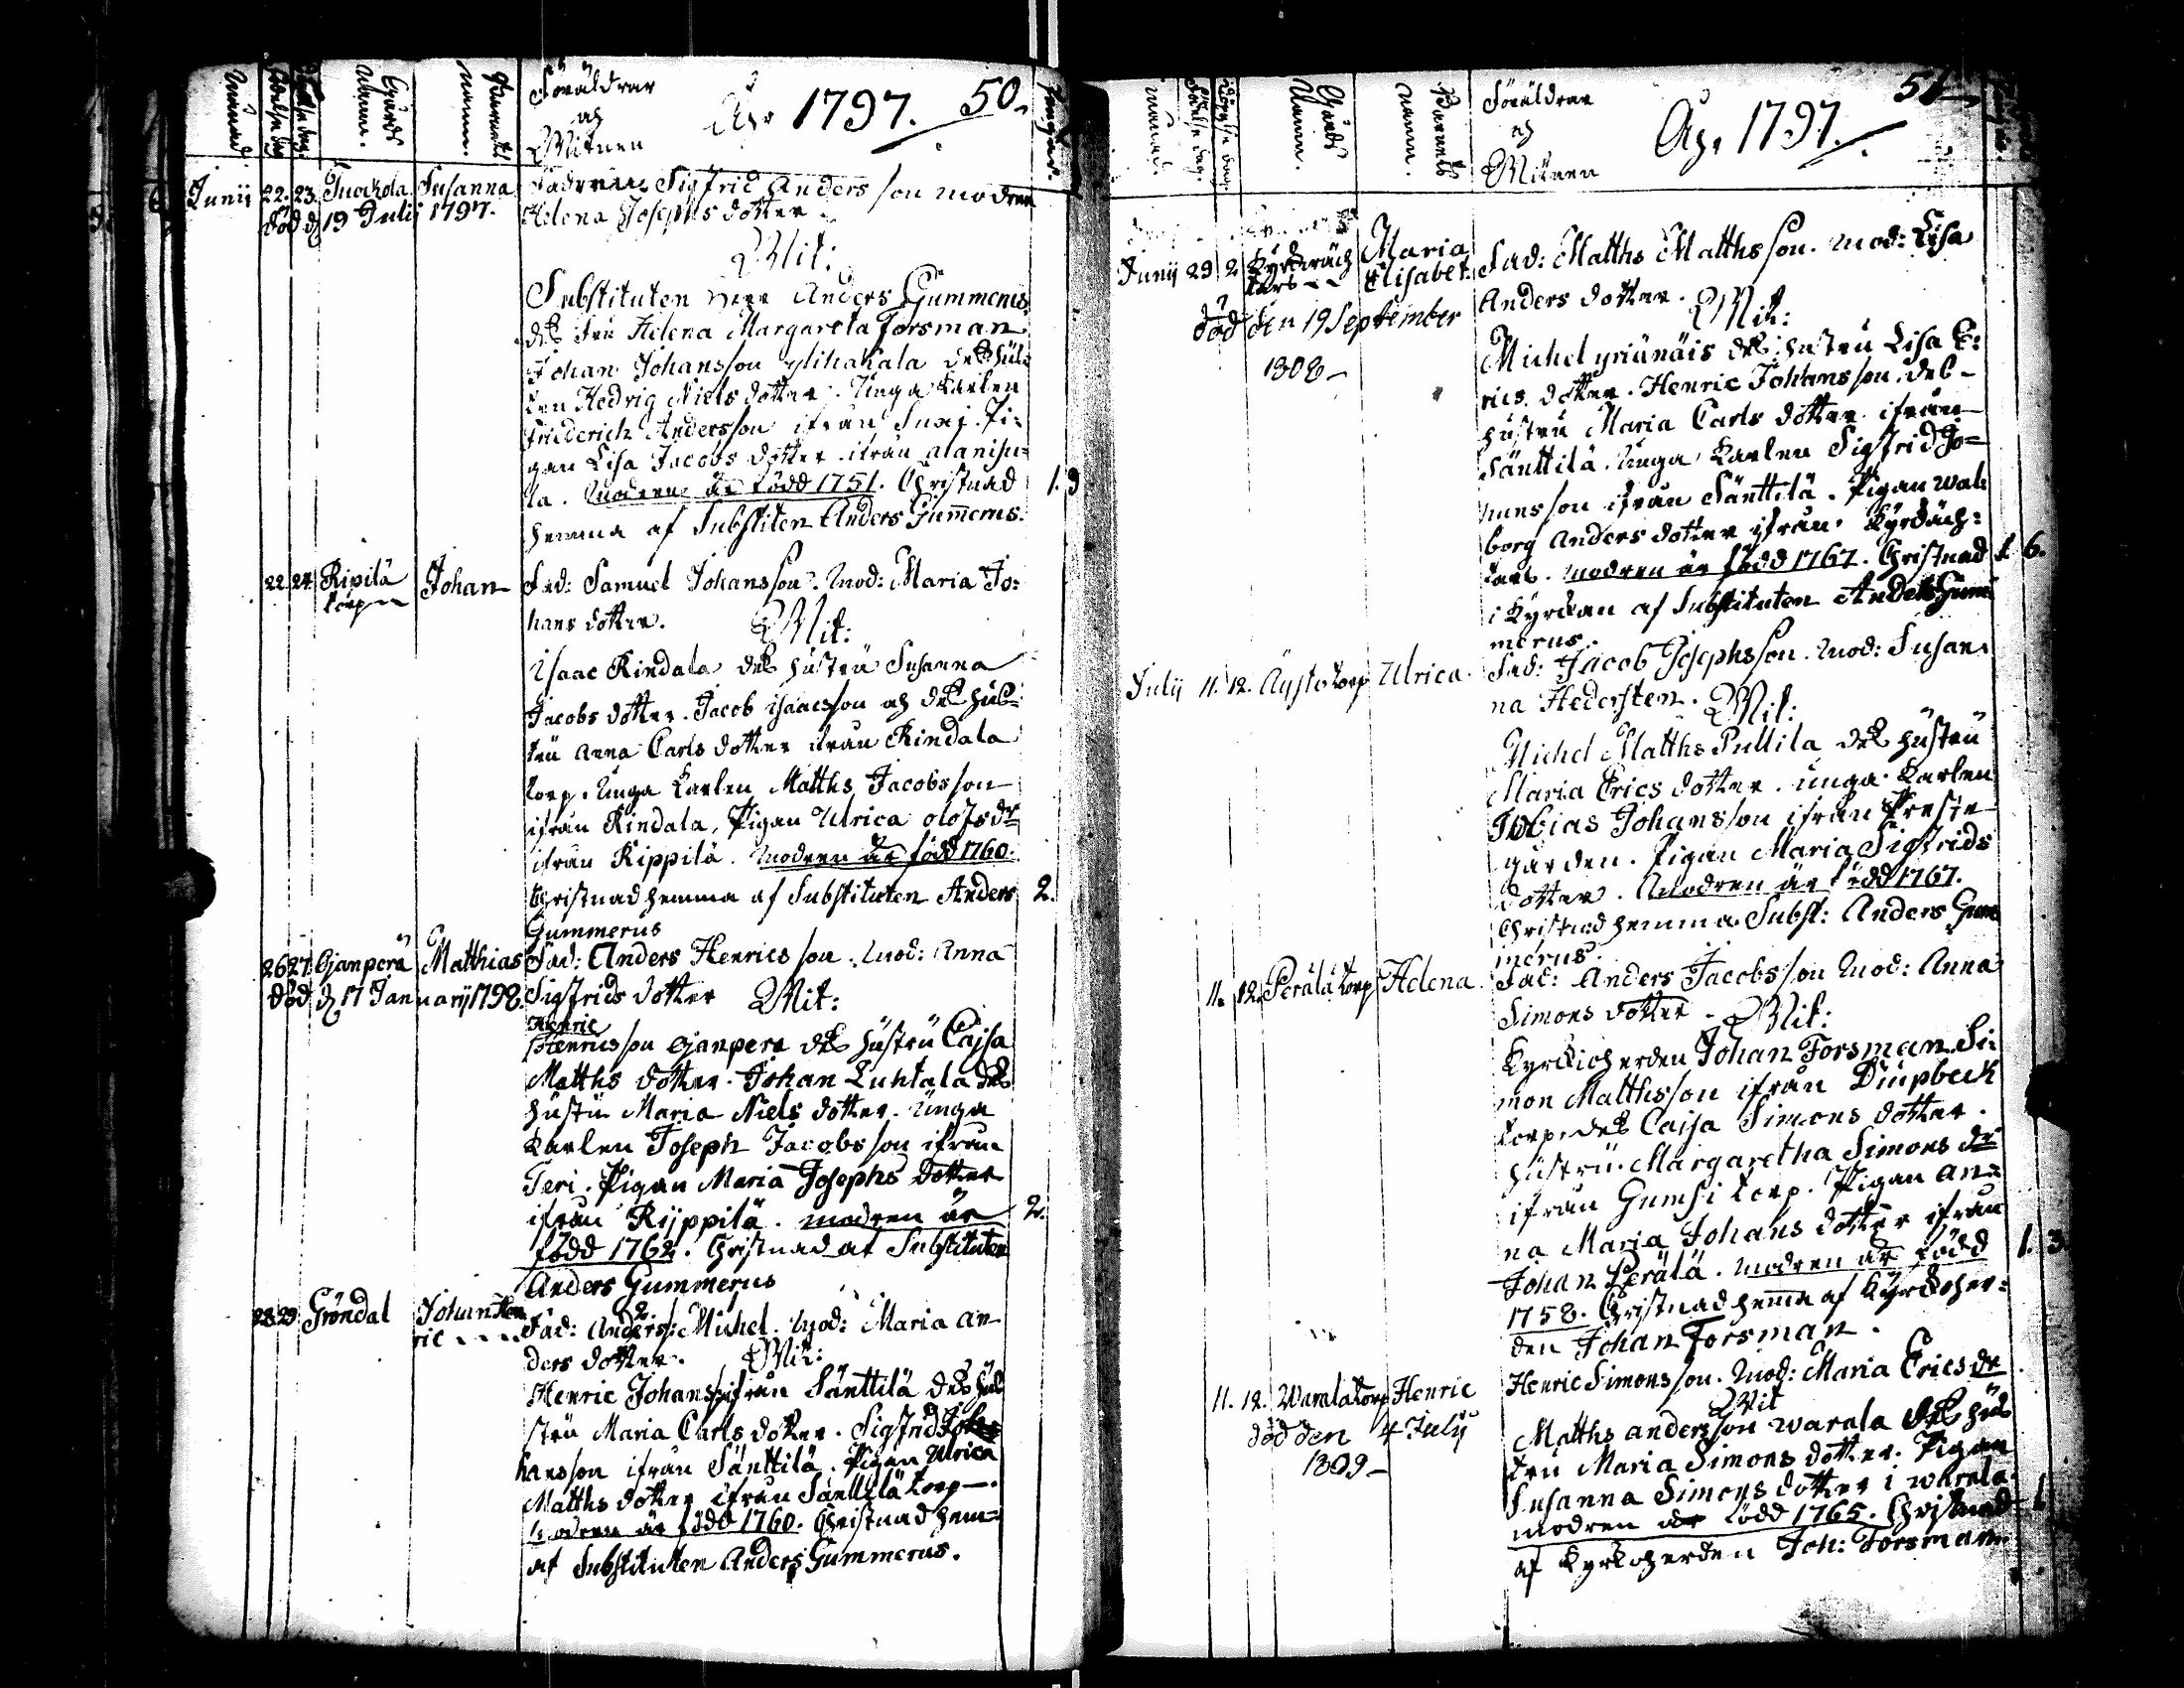 Månad.
Födelse dag
Döpelse dag.
Gårds Namn.
Barnets namn.
Föräldrar
och
Witnen
Åhr 1797. 50.
Junii 22. 23. Susanna
död d 19 Julii 1797.
Fadren Sigfrid Andersson modren
Helena Josephs dotter
Wit:
Substituten Herr Anders Gummerus
des fru Helena Margareta Forsman
Johan Johansson ylihakala des hus
Hedvig Niels dotter. Unga Karlen
Friederich Andersson ifrån Pi-
gan Lisa Jacobs dotter ifrån alanisu-
la. modren är född 1751. Christnad 1. 9
hemma af Substiten Anders Gummerus.
22. 24. Ripilä Johan Fad: Samuel Johansson. Mod: Maria Jo-
torp hans dotter. Wit:
Isaac Rindala des hustru Susanna
Jacobs dotter. Jacob isaacsson och des hus-
tru Anna Carls dotter ifrån Rindala
torp. Unga Karlen Matths Jacobsson
ifrån Rindala, Pigan Ulrica olofs dr
ifrån Rippilä. modren är född 1760.
Christnad hemma af Substituten Anders 2.
Gummerus
26 27 Ojanperä Matthias Fad: Anders Henricsson. Mod: Anna
död d 17 Januarij 1798. Sigfrids dotter Wit:
Henric
Henricsson Ojanpera des hustru Cajsa
Matths dotter. Johan Luhtala des
hustru Maria Niels dotter. Unga
Karlen Joseph Jacobsson ifrån
Teri. Pigan Maria Josephs dotter
ifrån Rijppilä. modren är 2.
född 1762. Christnad af Substituten
Anders Gummerus
28 29 Gröndal Johan Hen
ric Fad: Anders: Michel. Mod: Maria An
ders dotter. Wit:
Henric Johanss: ifrån Sänttilä des hus
stru Maria Carls dotter. Sigfrid Jo
hansson ifrån Sänttilä. Pigan Ulrica
Matths dotter ifrån Sänttilä torp
Modren är född 1760. Christnad hem-
af Substituten Anders Gummerus.
Månad.
Födelse dag.
Döpelse dag.
Gårds Namn.
Barnets namn.
Föräldrar
och
Witnen
Åhr 1797. 51
Junii 29 2 Maria
Elisabet. Fad: Matths Matthsson. Mod: Lisa
Anders dotter. Wit:
död den 19 September
1808
Michel des hustru Lisa E-
rics dotter. Henric Johansson. des
hustru Maria Carls dotter ifrån
Sänttilä. Unga Karlen Sigfrid Jo-
hansson ifrån Sänttilä. Pigan wal
borg Anders dotter ifrån
modren är född 1767. Christnad 1. 6.
i Kyrckan af Substituten Anders Gum
merus.
Julij 11. 12. Äystö torp Ulrica. Fad: Jacob Josephsson. Mod: Susan
na Hedersten. Wit:
Michel Matths Pullila des hustru
Maria Erics dotter. unga Karlen
Tobias Johansson ifrån Preste
gården. Pigan Maria Sigfrids
dotter. Modren är född 1767.
Christnad hemma. Subst: Anders Gum
merus.
11. 12. Perälä torp Helena. Fad: Anders Jacobsson Mod: Anna
Simons dotter. Wit:
Kyrckioherden Johan Forsman. Si-
mon Matthsson ifrån Diupbeck
torp. des Caisa Simons dotter.
hustru. Margaretha Simons dr
ifrån Gumsi torp. Pigan An-
na Maria Johans dotter ifrån
Johan Perälä. modren är född 1. 3.
1758. Christnad hemma af Kyrckoher-
den Johan Forsman.
11. 12. Warala torp Henric Henric Simonsson. Mod: Maria Erics dr
Wit
död den 4 July
1809
Matths andersson warala des hus
tru Maria Simons dotter. Pigan
Susanna Simons dotter i warala
modren är född 1765. Christnad 1
af Kyrkoherden Joh: Forsman.